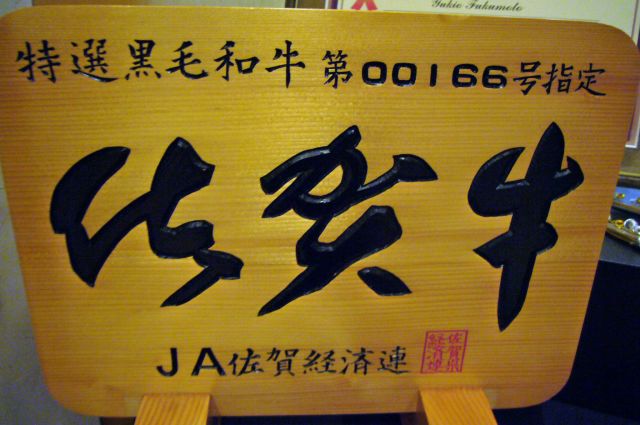 Yukio Fukumoto
特選黒毛和牛 第00166号指定
佐賀牛
JA佐賀経済連